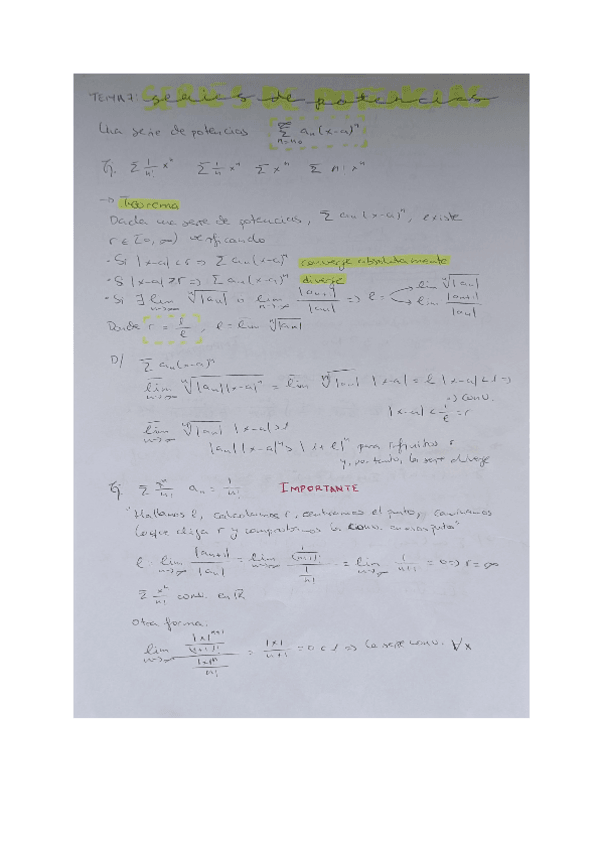 TEMA 7: Series de potencias
Una serie de potencias ∑_{n=n₀}^{∞} aₙ(x-a)ⁿ
Ej. ∑ 1/n! xⁿ ∑ 1/n xⁿ ∑ xⁿ ∑ n! xⁿ
→ Teorema
Dada una serie de potencias, ∑ aₙ(x-a)ⁿ, existe
r ∈ [0, ∞) verificando
· Si |x-a| < r ⇒ ∑ aₙ(x-a)ⁿ converge absolutamente
· Si |x-a| > r ⇒ ∑ aₙ(x-a)ⁿ diverge
· Si ∃ lim_{n→∞} ⁿ√|aₙ| o lim_{n→∞} |aₙ₊₁|/|aₙ| ⇒ l = lim ⁿ√|aₙ| lim |aₙ₊₁|/|aₙ|
Donde r = 1/l, l = lim ⁿ√|aₙ|
D/ ∑ aₙ(x-a)ⁿ
lim_{n→∞} ⁿ√|aₙ||x-a|ⁿ = lim ⁿ√|aₙ| |x-a| = l |x-a| < 1 ⇒
⇒ conv.
|x-a| < 1/l = r
lim_{n→∞} ⁿ√|aₙ| |x-a| > 1
para infinitos
y, por tanto, la serie diverge
Ej. ∑ xⁿ/n! aₙ = 1/n! IMPORTANTE
"Hallamos l, calculamos r, centramos el punto,
lo que diga r y comprobamos la conv. en esos puntos"
l = lim_{n→∞} |aₙ₊₁|/|aₙ| = lim_{n→∞} (1/(n+1)!)/(1/n!) = lim_{n→∞} 1/(n+1) = 0 ⇒ r = ∞
∑ xⁿ/n! conv. en ℝ
Otra forma:
lim_{n→∞} (|x|ⁿ⁺¹/(n+1)!)/(|x|ⁿ/n!) = |x|/(n+1) = 0 < 1 ⇒ la serie conv. ∀x